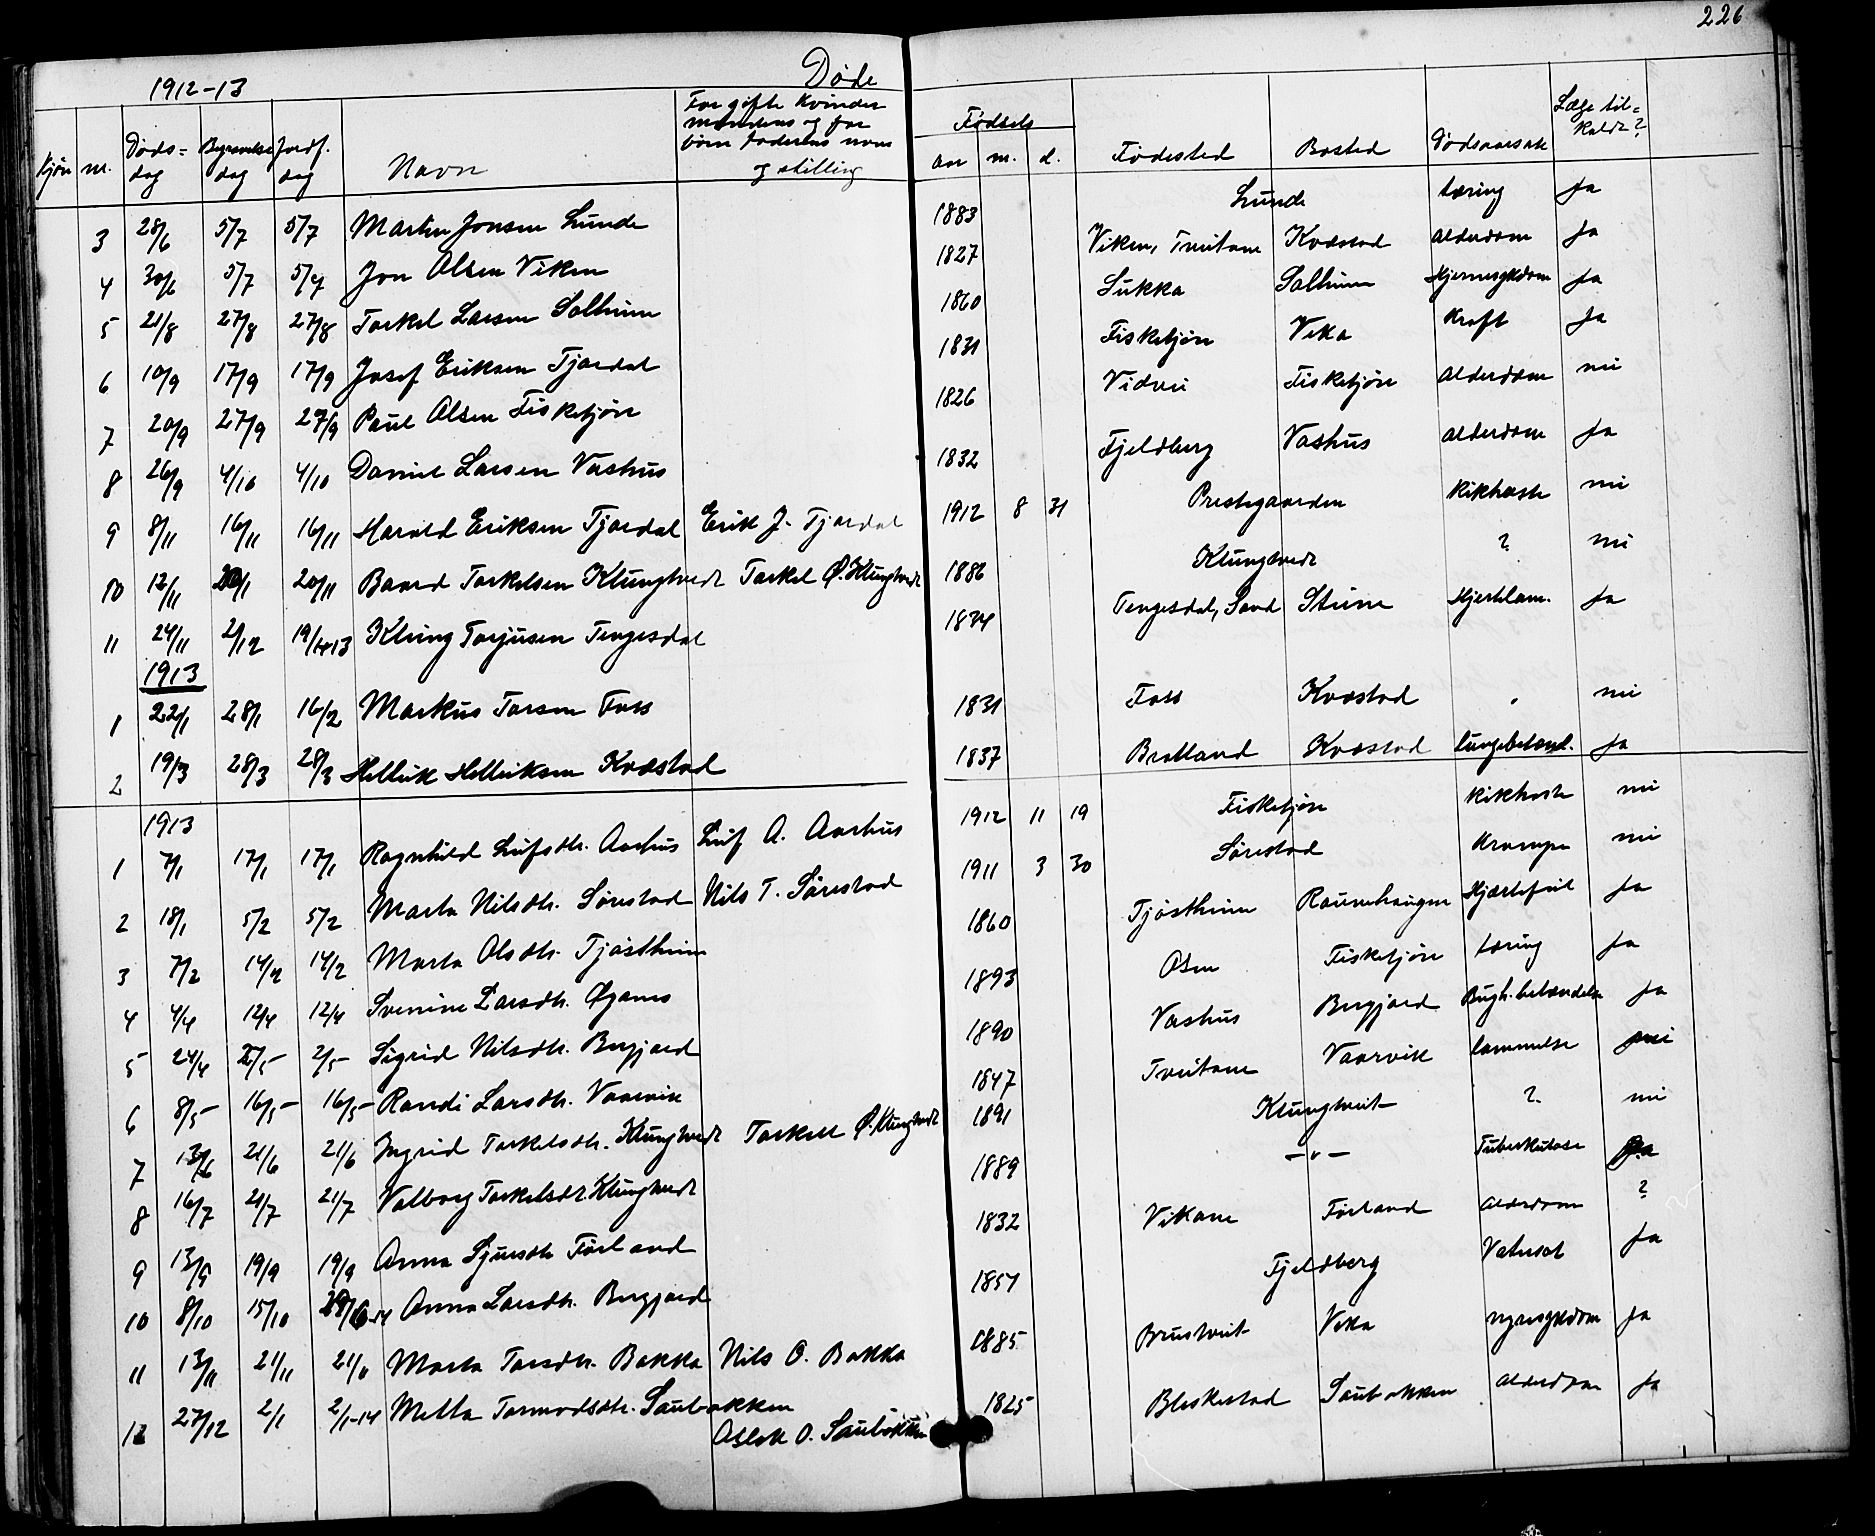 226
1912-13 Døde
Kjøn nr. Døds=dag Begravelsesdag Jordf. dag Navn For gifte kvinder mandens og for børn faderens navn og stilling Fødsels aar m. d. Fødested Bosted Dødsaarsak Læge til=kaldt?
3 28/6 5/7 5/7 Martin Jonsen Lunde 1883 Lunde tæring Ja
4 30/6 5/7 5/7 Jon Olsen Viken 1827 Viken, Tveitane Kvæstad alderdom Ja
5 21/8 27/8 27/8 Torkel Larsen Solheim 1860 Lukka Solheim Hjernesykdom Ja
6 10/9 17/9 17/9 Josef Eriksen Tjordal 1831 Fisketjøn Veka Kræft Ja
7 20/9 27/9 27/9 Paul Olsen Fisketjøn 1826 Vidvei Fisketjøn alderdom nei
8 26/9 4/10 4/10 Daniel Larsen Vashus 1832 Fjeldberg Vashus alderdom Ja
9 8/11 16/11 16/11 Harald Eriksen Tjordal Erik J. Tjordal 1912 8 31 Prestegaarden Kikhoste nei
10 12/11 20/11 20/11 Baard Torkelsen Klungtvedt Torkel Ø. Klungtvedt 1886 Klungtvedt ? nei
11 24/11 2/12 19/1-13 Klung Torjusen Tengesdal 1824 Tengesdal, Sand Steine Hjertelam. Ja
1913
1 22/1 28/1 16/2 Markus Torsen Foss 1831 Foss Kvæstad nei
2 19/3 28/3 28/3 Hellik Helliksen Kvæstad 1837 Bratland Kvæstad lungebetænd. Ja
1913
1 7/1 17/1 17/1 Ragnhild Leifsdtr. Aarhus Leif A. Aarhus 1912 11 19 Fisketjøn kikhoste nei
2 18/1 5/2 5/2 Marta Nilsdtr. Sørestad Nils T. Sørestad 1911 3 30 Sørestad Krampe nei
3 7/2 14/2 14/2 Marta Olsdtr. Tjøstheim 1860 Tjøstheim Raunehaugen Hjærtefeil Ja
4 4/4 12/4 12/4 Svenine Larsdtr. Øyanes 1893 Osen Fisketjøn tæring Ja
5 24/4 2/5- 2/5- Sigrid Nilsdtr. Bergjord 1890 Vashus Bergjord Bugh. betændelse Ja
6 8/5- 16/5- 16/5- Randi Larsdtr. Vaarvik 1847 Tveitane Vaarvik lammelse nei
7 13/6 21/6 21/6 Ingrid Torkelsdtr. Klungtvedt Torkel Ø. Klungtvedt 1891 Klungtveit ? nei
8 16/7 21/7 21/7 Valborg Torkelsdtr. Klungtvedt 1889 -"- Tuberkulose Ja
9 13/9 19/9 19/9 Anna Sjursdtr. Førland 1832 Vikane Førland alderdom ?
10 8/10 15/10 Anna Larsdtr. Bergjord 1857 Fjeldberg Vatersot Ja
11 13/11 21/11 21/11 Marta Torsdtr. Bakka Nils O. Bakka 1885 Brustveit Veka nyresykdom Ja
12 27/12 2/1 2/1-14 Metta Tormodsdtr. Saubakken Aslak O. Saubakken 1825 Bleskestad Saubakken alderdom Ja